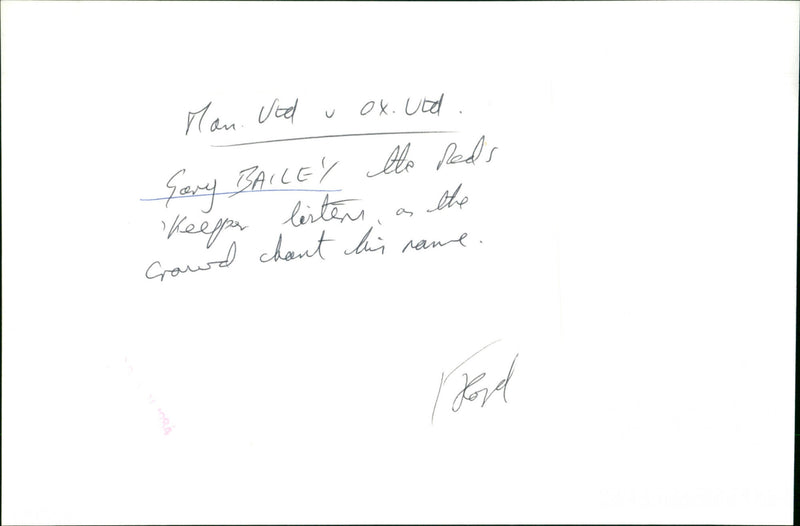 Man. Utd v Ox. Utd.
Gary BAILEY the Reds
'Keeper listens, as the
crowd chant his name.